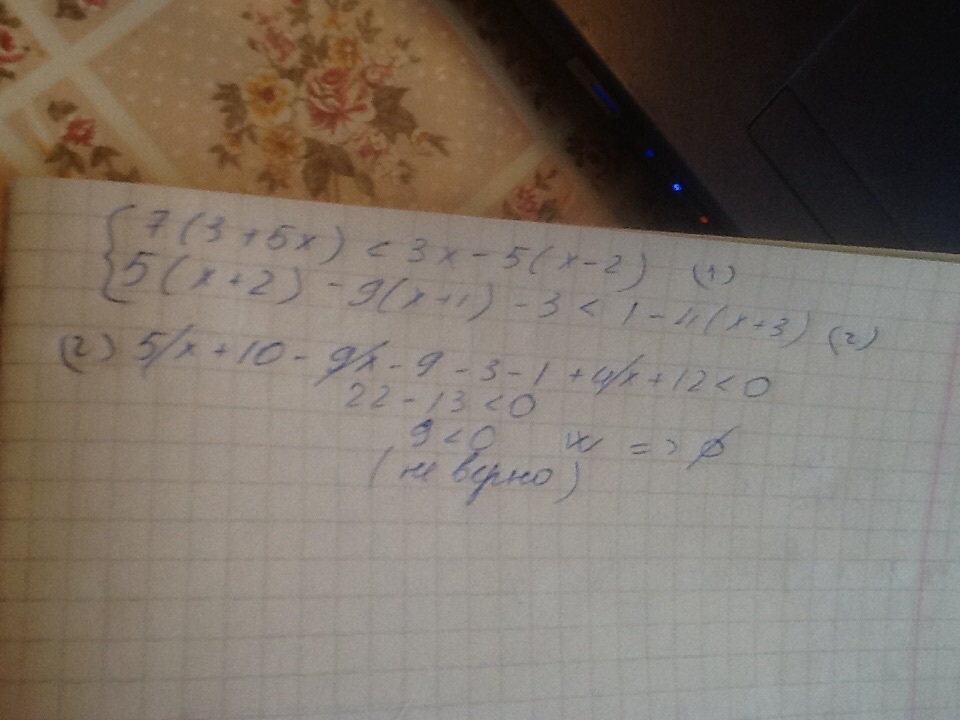 { 7(3+5x) < 3x - 5(x-2) (1)
5(x+2) - 9(x+1) - 3 < 1 - 4(x+3) (2)
(2) 5x + 10 - 9x - 9 - 3 - 1 + 4x + 12 < 0
22 - 13 < 0
9 < 0 => ∅
(не верно)